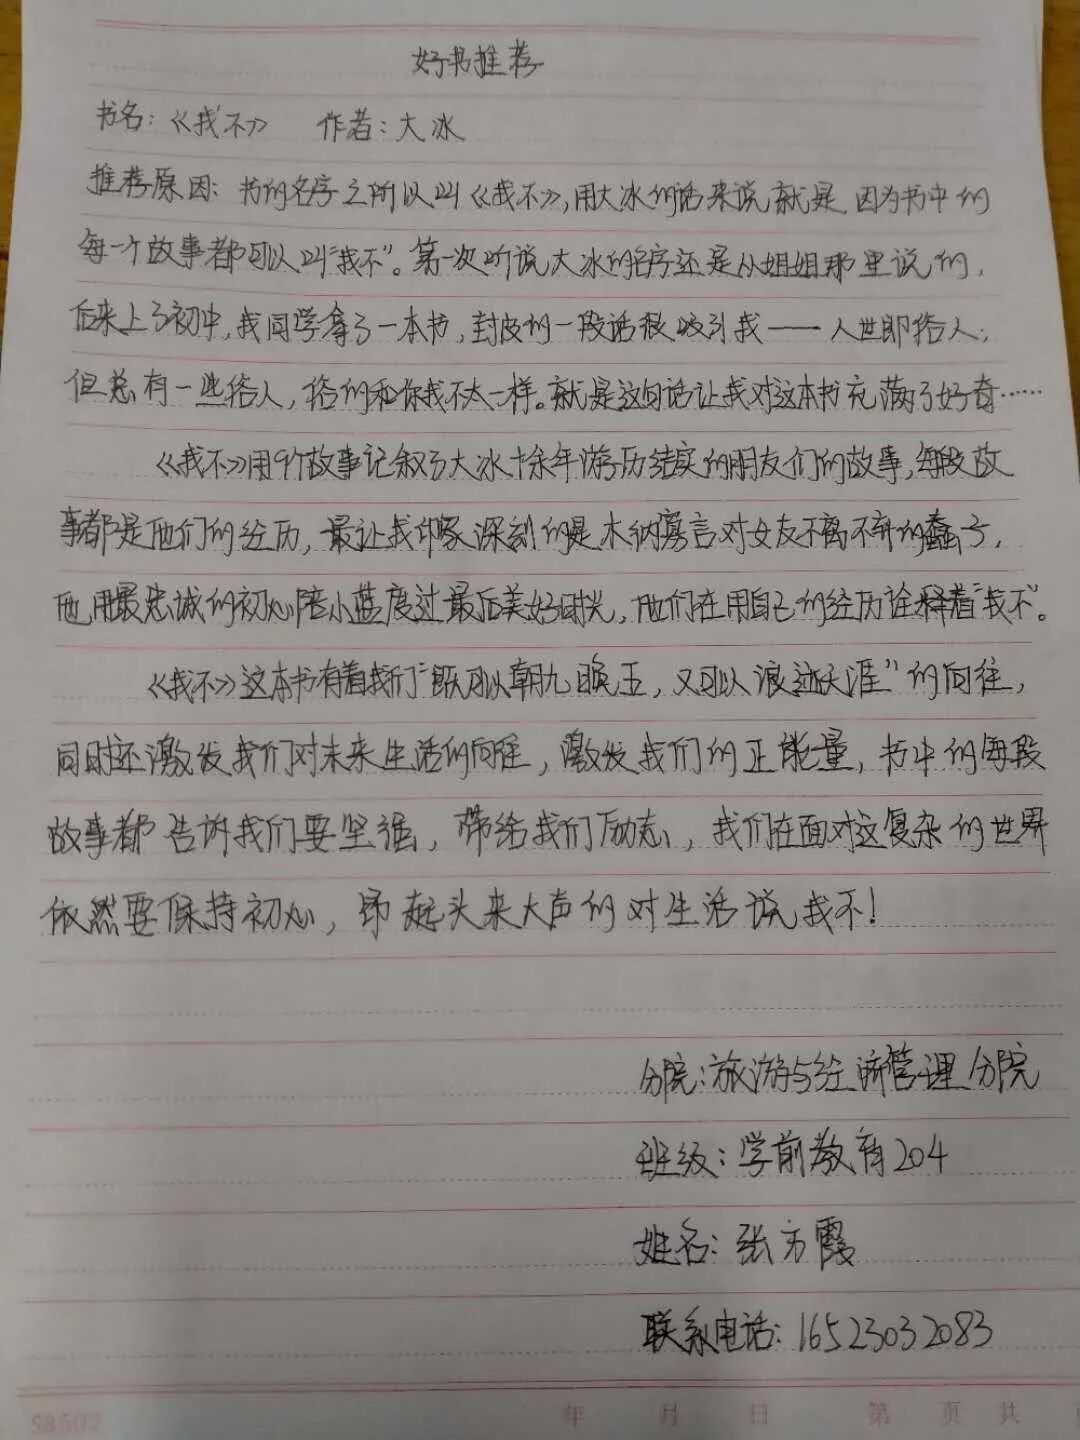 好书推荐
书名：《我不》　作者：大冰
推荐原因：书的名字之所以叫《我不》，用大冰的话来说就是因为书中的
每一个故事都可以叫“我不”。第一次听说大冰的名字还是从姐姐那里说的，
后来上了初中，我同学拿了一本书，封皮的一段话很吸引我——人世即俗人；
但总有一些俗人，俗的和你我不太一样。就是这句话让我对这本书充满了好奇……
《我不》用9个故事记叙了大冰十余年游历结实的朋友们的故事，每段故
事都是他们的经历，最让我印象深刻的是木纳寡言对女友不离不弃的蠢子，
他用最忠诚的初心陪小蓝度过最后美好时光，他们在用自己的经历诠释着“我不”。
《我不》这本书有着我们“既可以朝九晚五，又可以浪迹天涯”的向往，
同时还激发我们对未来生活的向往，激发我们的正能量，书中的每段
故事都告诉我们要坚强，带给我们励志，我们在面对这复杂的世界
依然要保持初心，昂起头来大声的对生活说我不！
分院：旅游与经济管理分院
班级：学前教育204
姓名：张方霞
联系电话：16523032083
SB502　年　月　日　第　页共